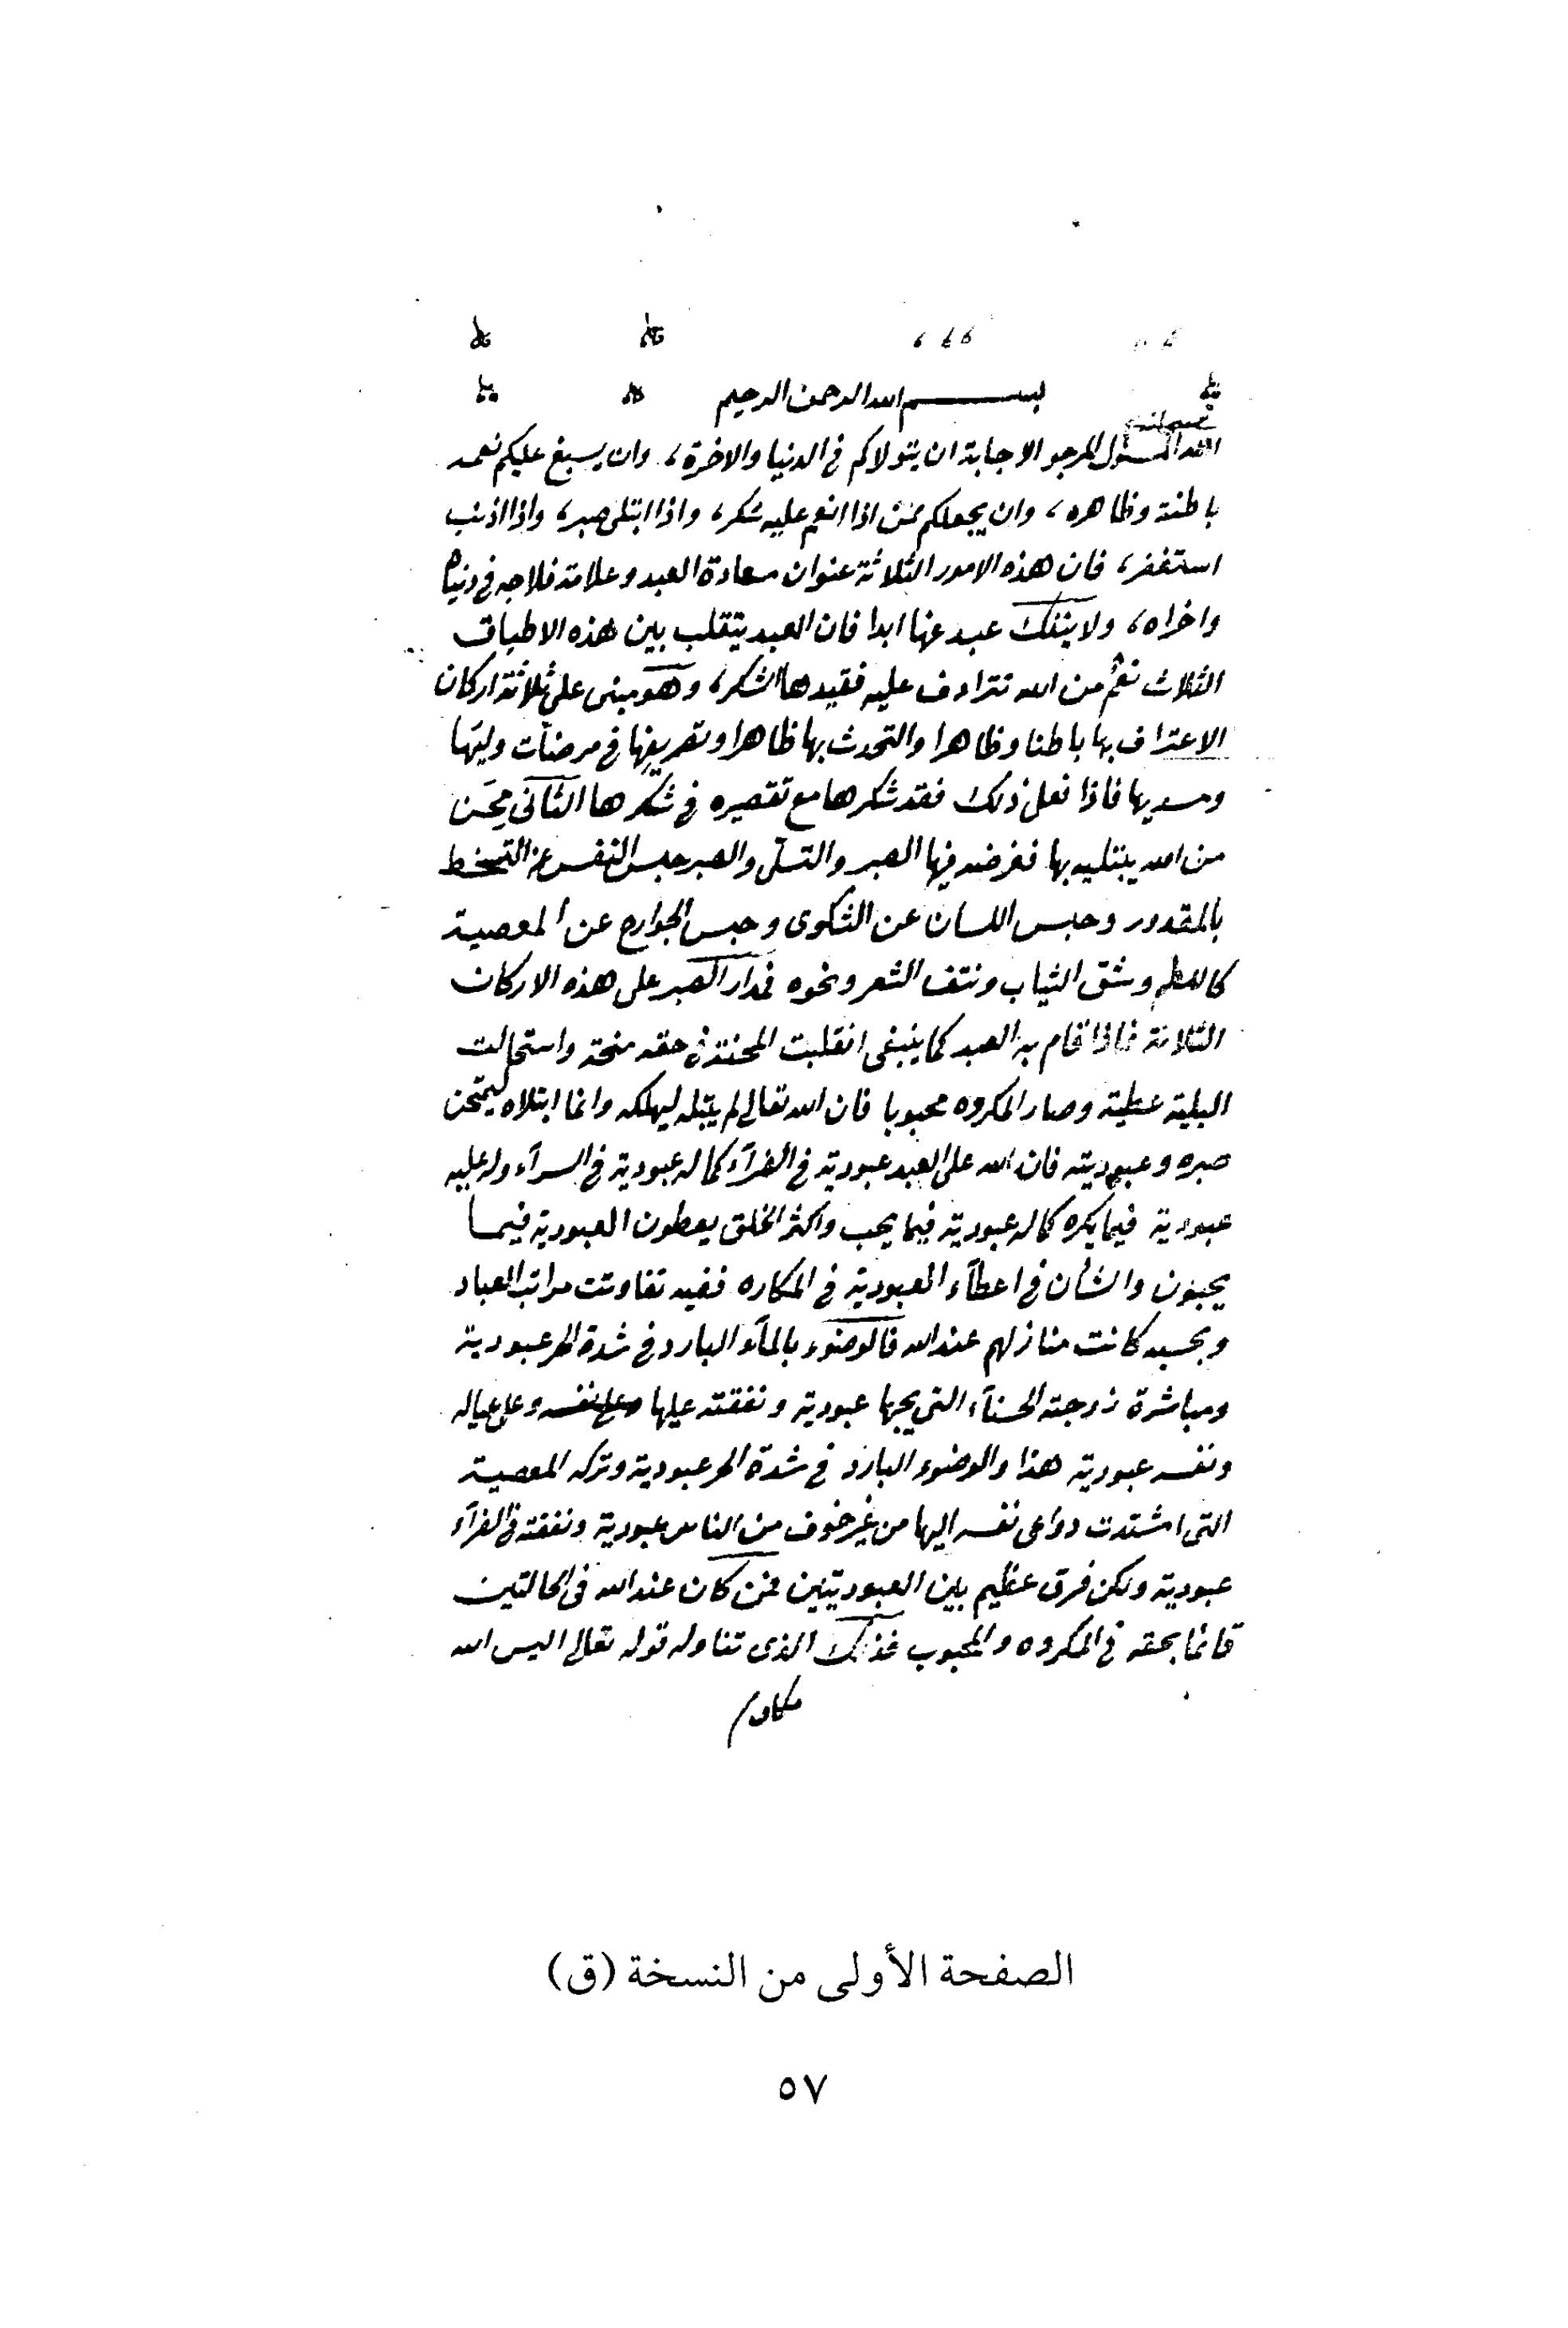 بســـــــم الله الرحمن الرحيم
الله المسئول المرجو الاجابة ان يتولاكم فى الدنيا والاخرة، وان يسبغ عليكم نعمه
باطنة وظاهره، وان يجعلكم ممن اذا انعم عليه شكر، واذا ابتلى صبر، واذا اذنب
استغفر، فان هذه الامور الثلاثة عنوان سعادة العبد وعلامة فلاحه فى دنياه
واخراه، ولا ينفك عبد عنها ابدا فان العبد يتقلب بين هذه الاطباق
الثلاث نعم من الله تترادف عليه فقيدها الشكر، وهو مبنى على ثلاثة اركان
الاعتراف بها باطنا وظاهرا والتحدث بها ظاهرا وتصريفها فى مرضات وليها
ومسديها فاذا فعل ذلك فقد شكرها مع تقصيره فى شكرها الثانى محن
من الله يبتليه بها ففرضه فيها الصبر والتسلى والصبر حبس النفس عن التسخط
بالمقدور وحبس اللسان عن الشكوى وحبس الجوارح عن المعصية
كاللطم وشق الثياب ونتف الشعر ونحوه فمدار الصبر على هذه الاركان
الثلاثة فاذا قام به العبد كما ينبغى انقلبت المحنة فى حقه منحة واستحالت
البلية عطية وصار المكروه محبوبا فان الله تعالى لم يبتله ليهلكه وانما ابتلاه ليمتحن
صبره وعبوديته فان لله على العبد عبودية فى الضرآء كما له عبودية فى السرآء وله عليه
عبودية فيما يكره كما له عبودية فيما يحب واكثر الخلق يعطون العبودية فيما
يحبون والشأن فى اعطآء العبودية فى المكاره ففيه تفاوتت مراتب العباد
وبحسبه كانت منازلهم عند الله فالوضوء بالمآء البارد فى شدة الحر عبودية
ومباشرة زوجته الحسنآء التى يحبها عبودية ونفقته عليها وعلى نفسه وعلى عياله
ونفسه عبودية هذا والوضوء البارد فى شدة الحر عبودية وتركه المعصية
التى اشتدت دواعى نفسه اليها من غير خوف من الناس عبودية ونفقته فى الضرآء
عبودية ولكن فرق عظيم بين العبوديتين فمن كان عند الله فى الحالتين
قائما بحقه فى المكروه والمحبوب فذلك الذى تناوله قوله تعالى اليس الله
بكاف
الصفحة الأولى من النسخة (ق)
٥٧